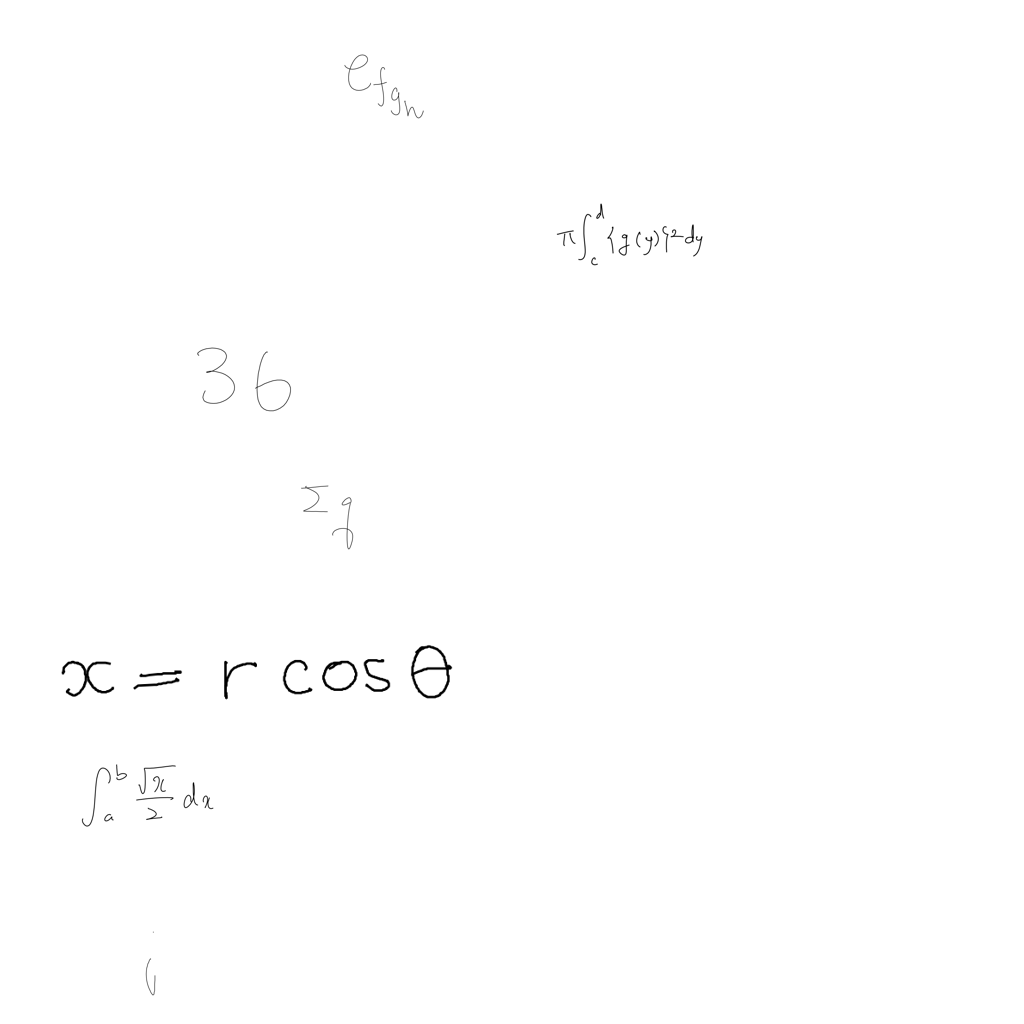 e_{f_{g_{h}}}
\pi \int_{c}^{d} \{g(y)\}^{2} dy
36
\Sigma q
x = r cos θ
\int_{a}^{b} \frac{\sqrt{x}}{2} dx